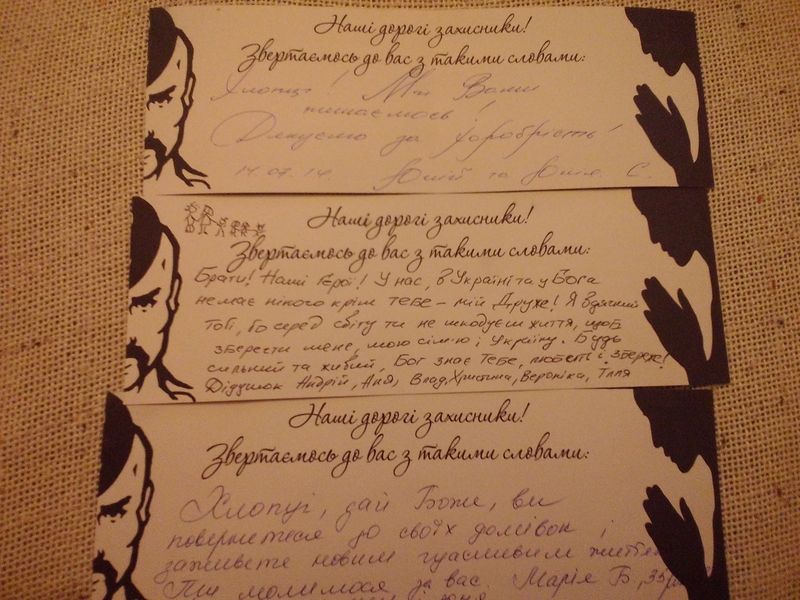 Наші дорогі захисники!
Звертаємось до вас з такими словами:
Хлопці! Ми Вами
пишаємось!
Дякуємо за хоробрість!
14.07.14. Юлія С.
Наші дорогі захисники!
Звертаємось до вас з такими словами:
Брати! Наші Герої! У нас, в Україні та у Бога
немає нікого крім ТЕБЕ – мій Друже! Я вдячний
тобі, бо серед світу ти не шкодуєш життя, щоб
зберегти мене, мою сім'ю і Україну. Будь
сильний та живий, Бог знає Тебе, любить і збереже!
Дідушок Андрій, Аня, Влад, Христина, Вероніка, Ілля
Наші дорогі захисники!
Звертаємось до вас з такими словами:
Хлопці, дай Боже, ви
повернетеся до своїх домівок і
заживете новим щасливим життям
Ми молимося за вас. Марія Б, 33